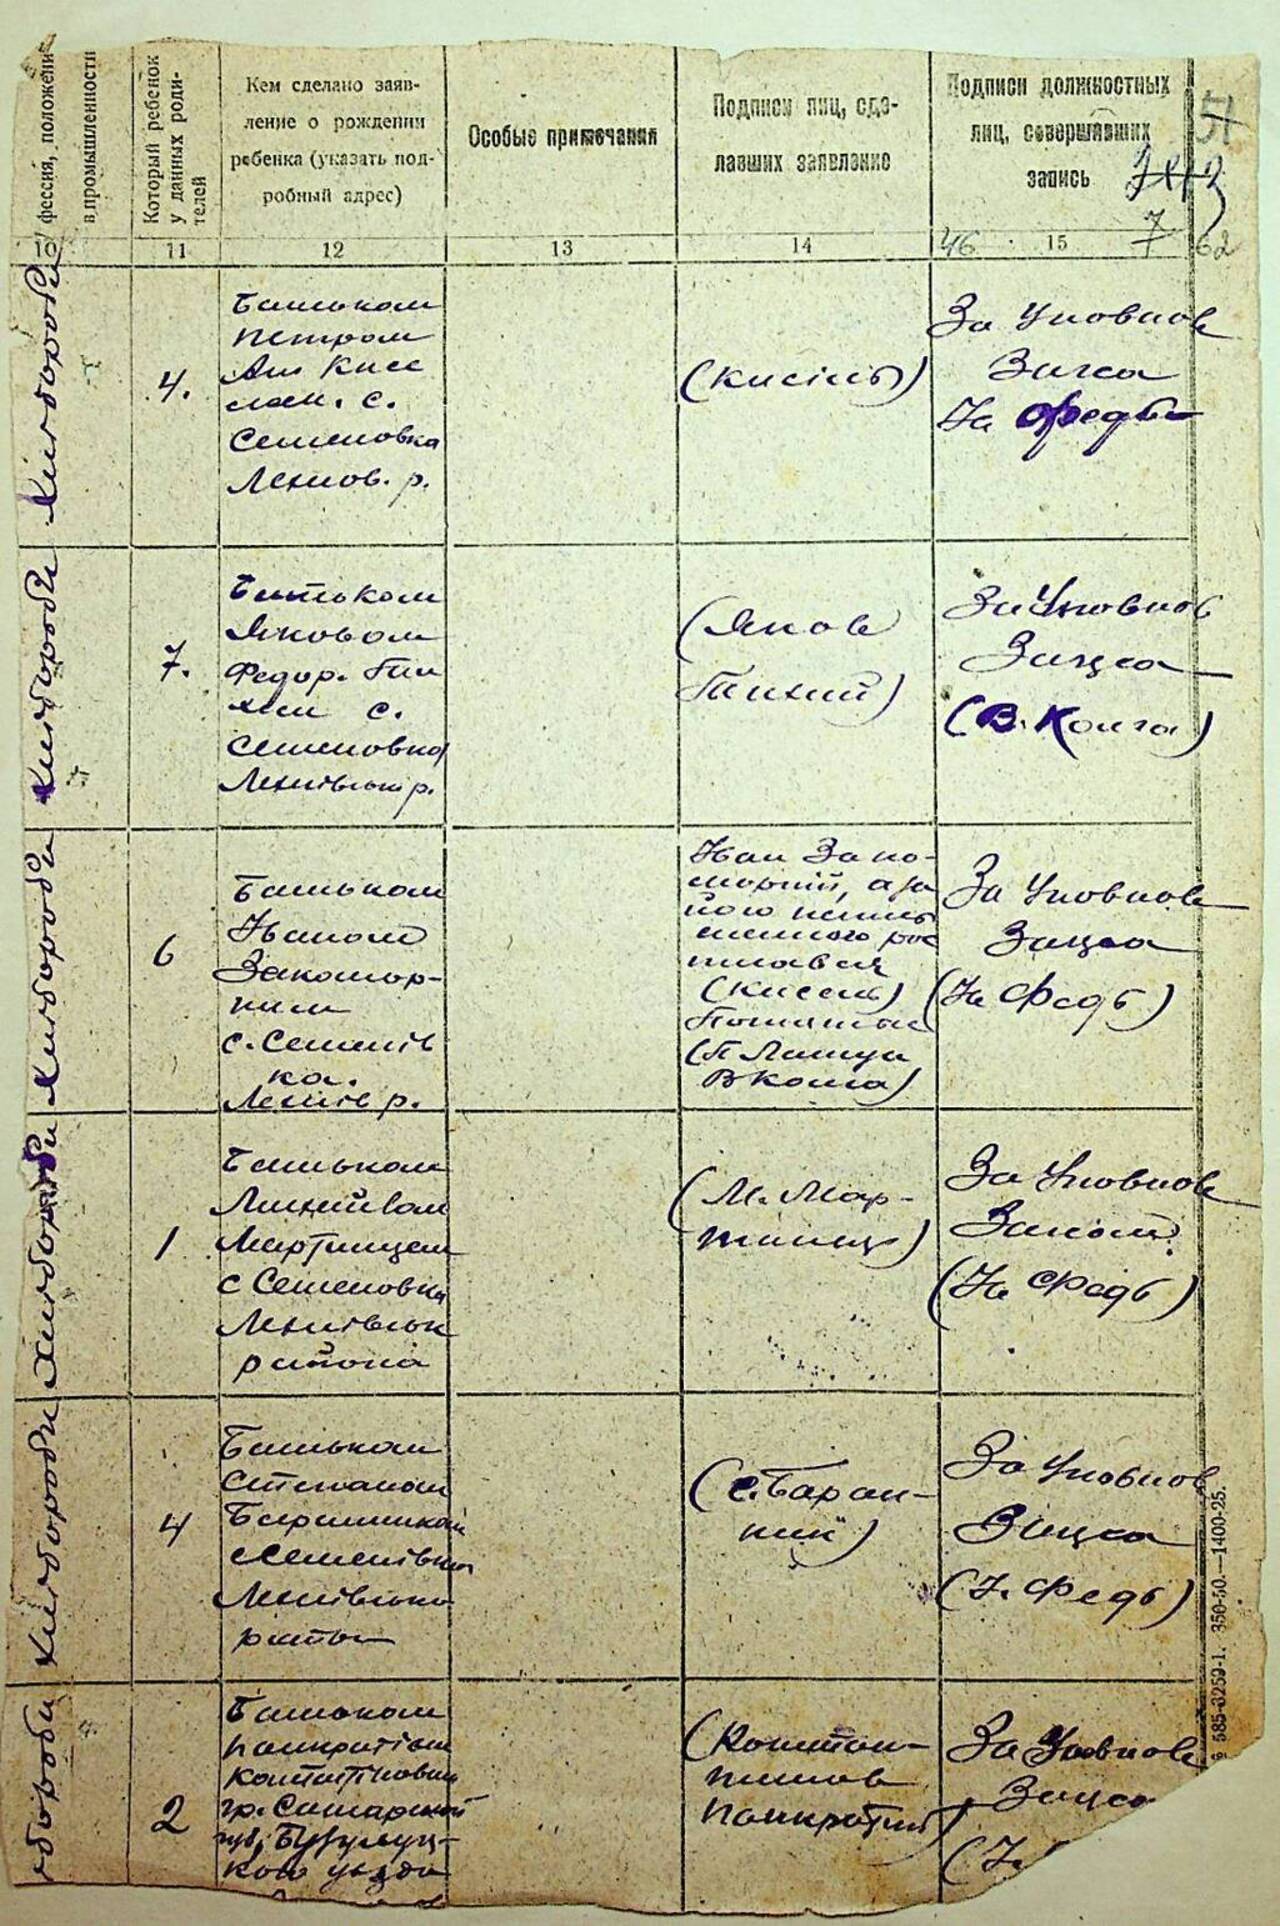 фессия, положени
в промышленности
Который ребенок
у данных роди-
телей
Кем сделано заяв-
ление о рождении
ребенка (указать под-
робный адрес)
Особые примечания
Подписи лиц, сде-
лавших заявление
Подписи должностных
лиц, совершивших
запись
57
7
10
11
12
13
14
46
15
62
Хлибороби
4.
Батьком
Петром
с.
Семеновка
Ленинов. р.
(Кисіль)
За Уповнов
Загса
Ів Федь
Хлибороби
7.
Батьком
Яковом
Федор. Тих
им с.
Семеновка
Ленівськ р.
(Яков
Тихий)
За Уповнов
Загса
(В. Конга)
Хлибороби
6
Батьком
Иваном
Закомор-
ним
с. Семенів
ка.
Ленів р.
Иван Зако-
морний, а за
його непись
менного рос
писався
(Кисель)
(П Лащук
Хлибороби
1
Батьком
Мартинцем
с Семеновка
Ленівськ
района
(М. Мар-
тинец)
За Уповнов
(Ів Федь)
Хлибороби
4
Батьком
Степаном
Баранником
с Семенівка
(С. Баран-
ник)
За Уповнов
Загса
(І. Федь)
ибороби
2
Батьком
Панкратіем
Констатіновим
гр. Самарской
губ, Бугулуц-
кого уезда
(Констан-
тинов
Панкратий)
За Уповнов
Загса
(І.
585-3259-1. 350-50.—1400-25.